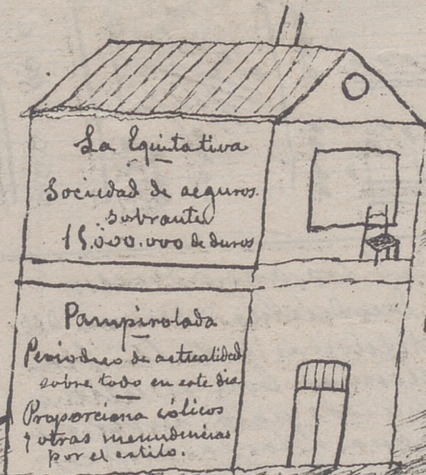 La Equitativa
Sociedad de seguros
sobrante
15.000.000 de duros
Pampirolada
Periodico de actualidad
sobre todo en este dia
Proporciona cólicos
y otras menudencias
por el estilo.